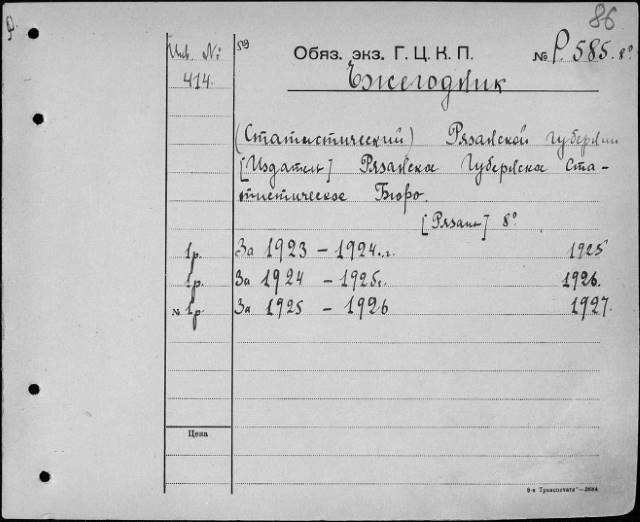 86
Р.
Инв. №
414.
59
Обяз. экз. Г. Ц. К. П.
№ Р. 585. 8°
Ежегодник
(Статистический) Рязанской губернии
[Издатель] Рязанское Губернское Ста-
тистическое Бюро.
[Рязань] 8°
1р. За 1923 – 1924 г.г. 1925
1р. За 1924 – 1925 г. 1926.
№ 1р. За 1925 – 1926 1927.
Цена
9-я Транспечати"—3684